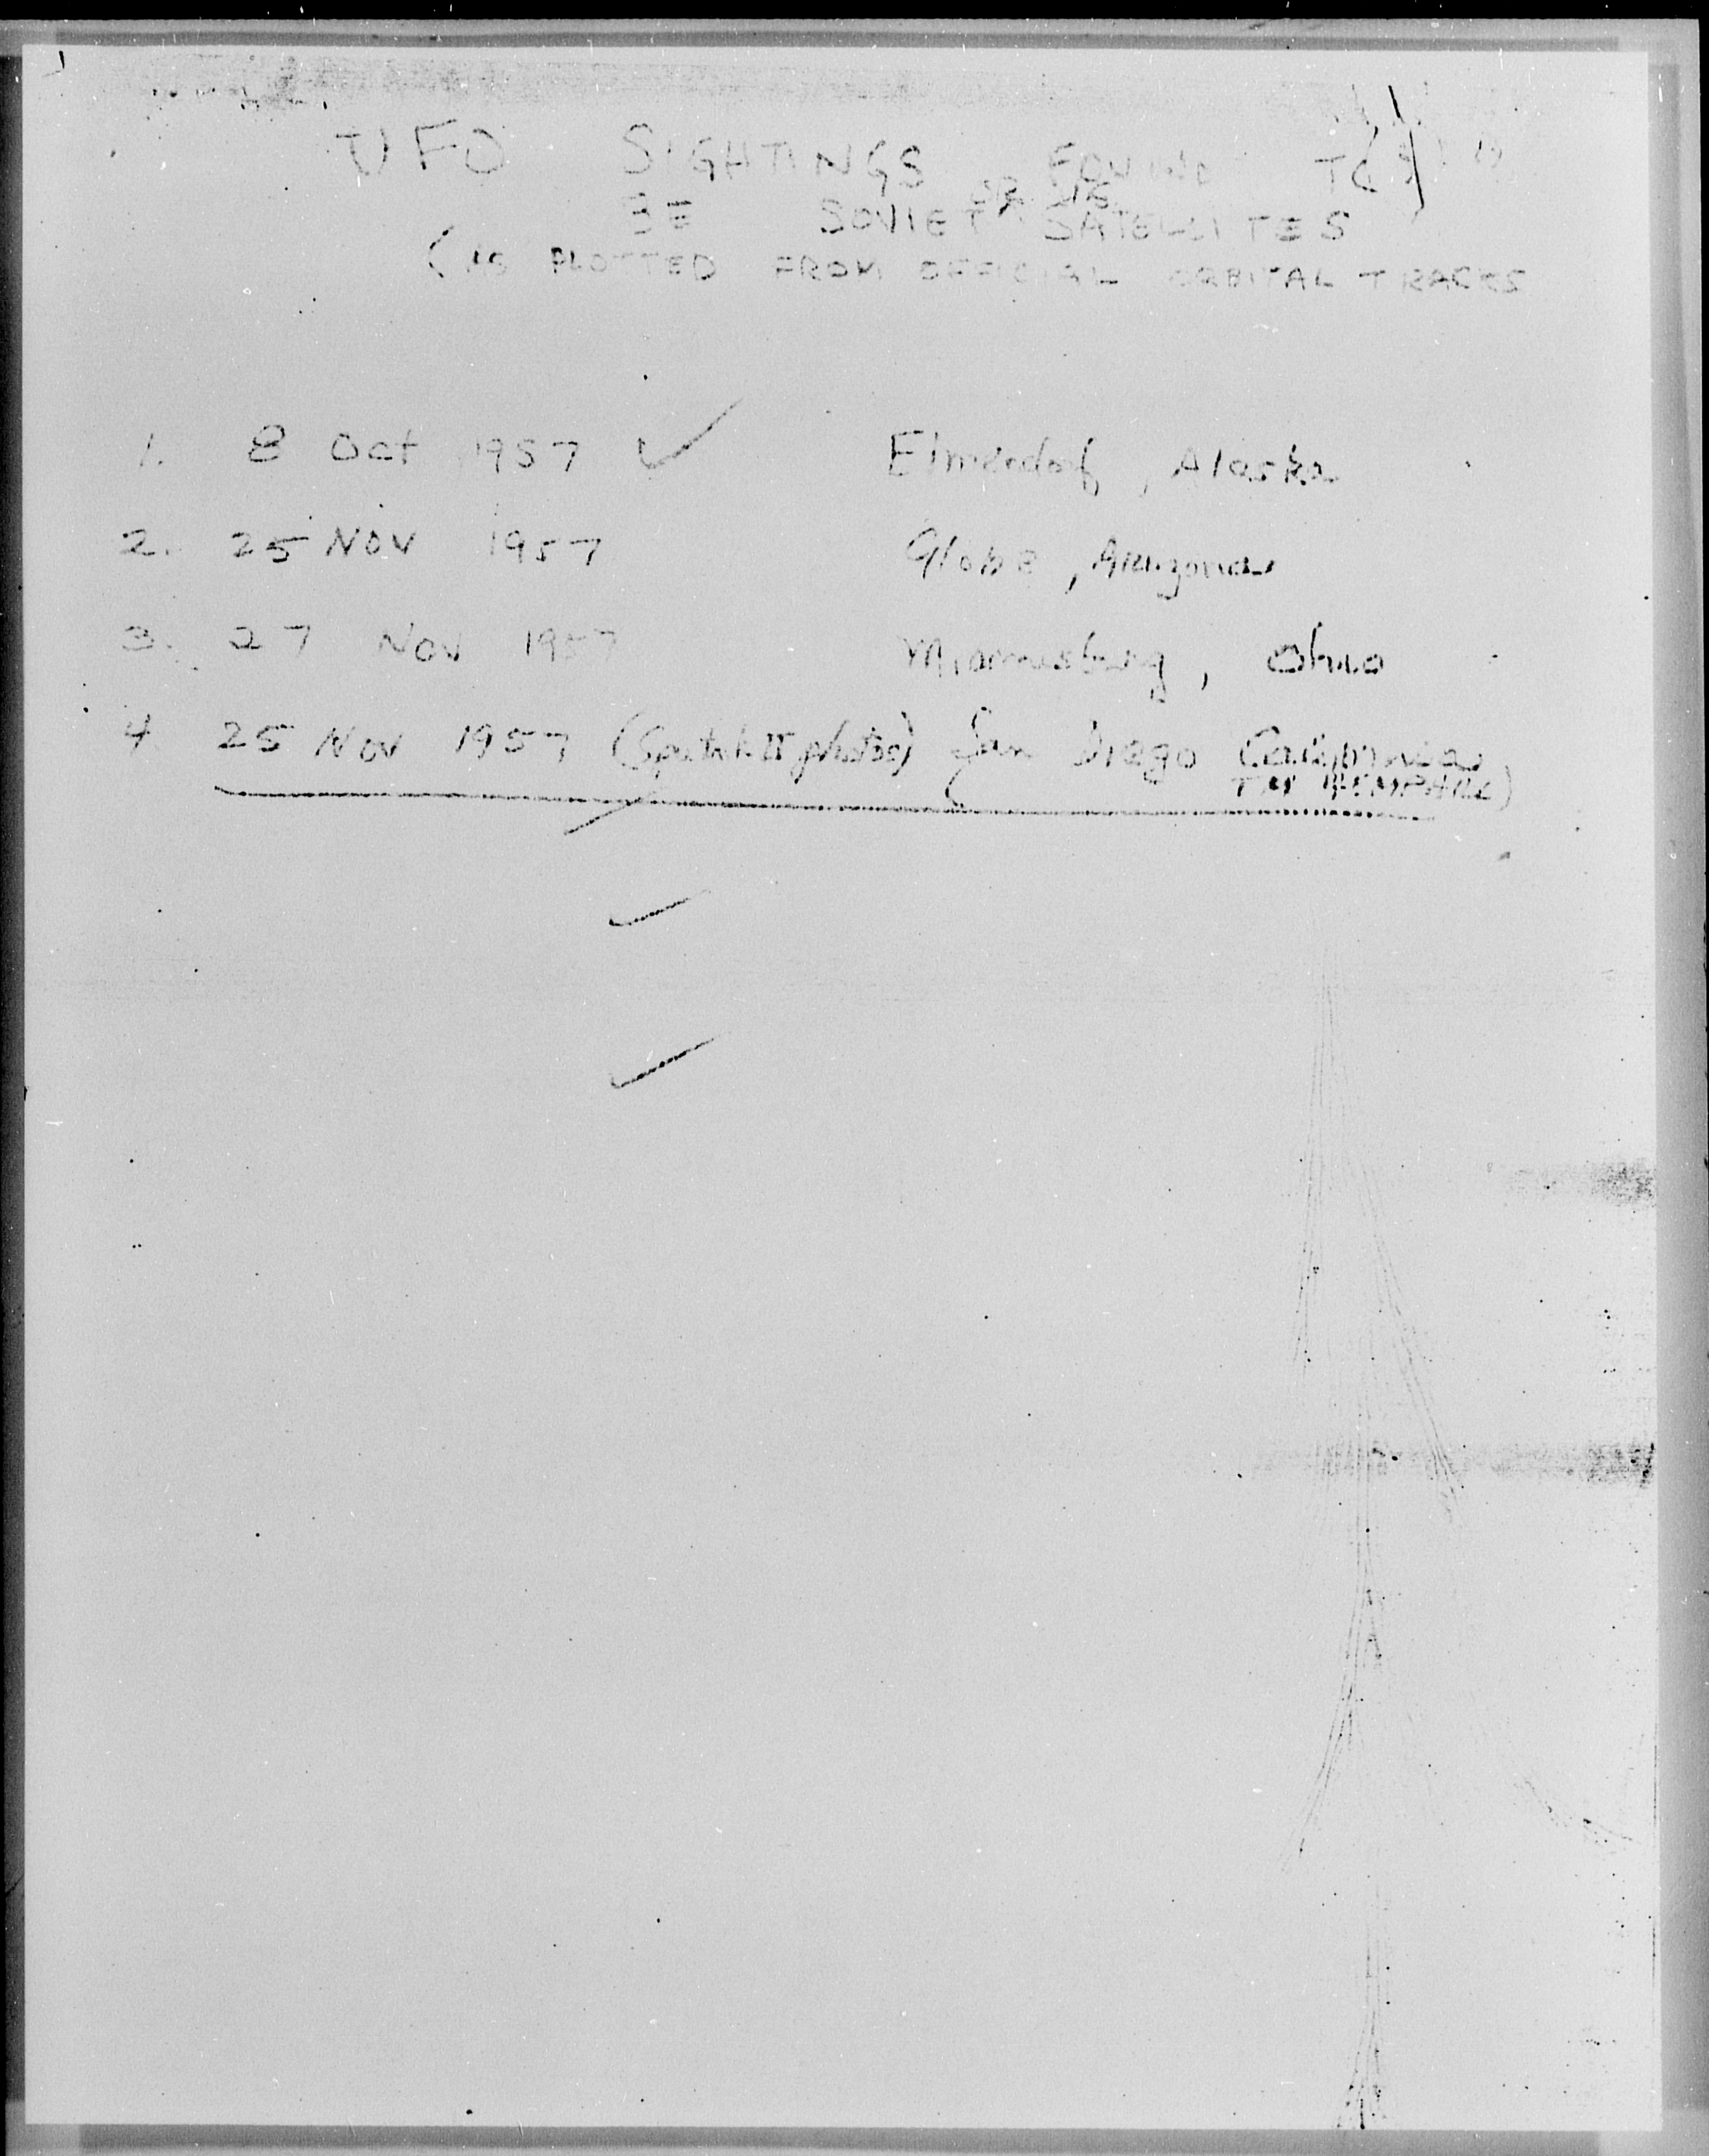 UFO SIGHTINGS FOUND TO
OR US
BE SOVIET SATELLITES
(AS PLOTTED FROM OFFICIAL ORBITAL TRACKS
1. 8 Oct 1957 ✓ Elmendorf, Alaska
2. 25 Nov 1957 Globe, Arizona
3. 27 Nov 1957 Miamisburg, Ohio
4 25 Nov 1957 (Sputnik II photos) San Diego California